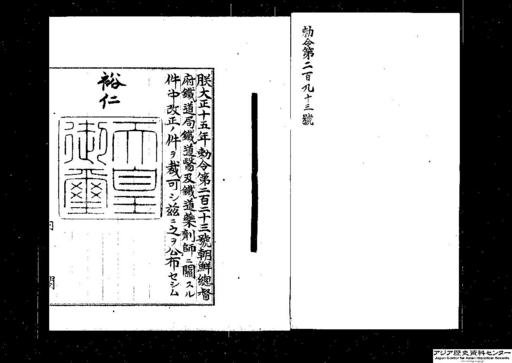 勅令第二百九十三號
朕大正十五年勅令第二百二十三號朝鮮總督
府鐵道局鐵道醫及鐵道藥劑師ニ關スル
件中改正ノ件ヲ裁可シ茲ニ之ヲ公布セシム
裕仁
天皇
御璽
内 閣
アジア歴史資料センター
Japan Center for Asian Historical Records